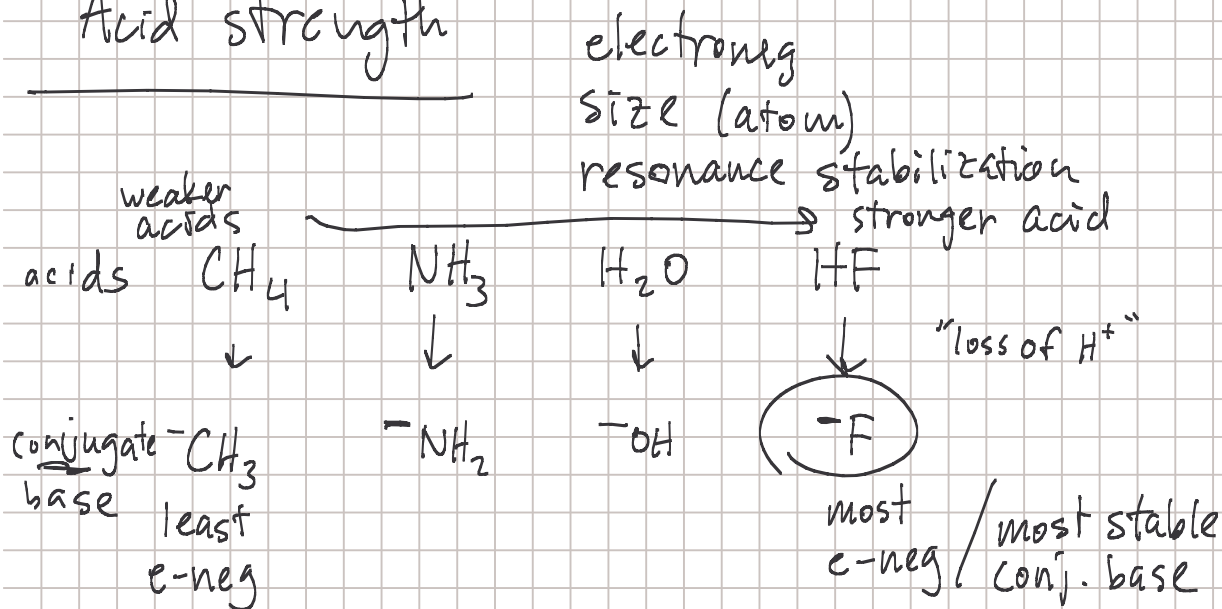 Acid strength
electroneg
size (atom)
resonance stabilization
weaker
acids
stronger acid
acids CH₄ NH₃ H₂O HF
"loss of H⁺"
conjugate ⁻CH₃ ⁻NH₂ ⁻OH ⁻F
base
least
e-neg
most
e-neg / most stable
conj. base